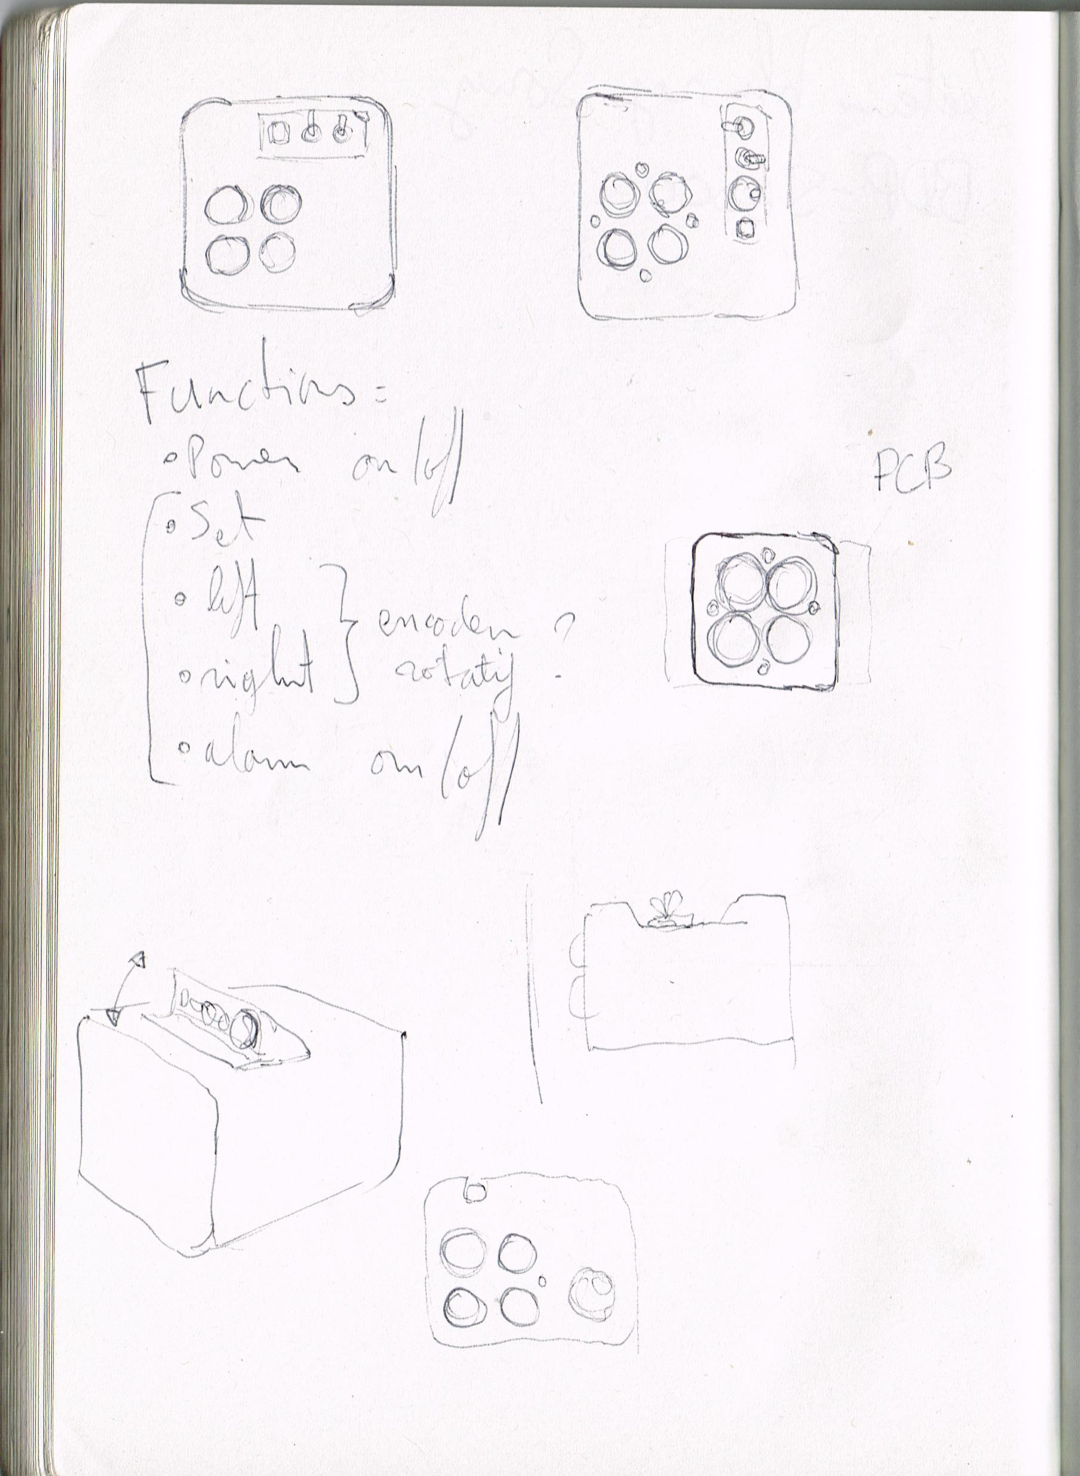 Functions :
• Power on/off
• Set
• left
• right
encoder
rotatif ?
• alarm on/off
PCB